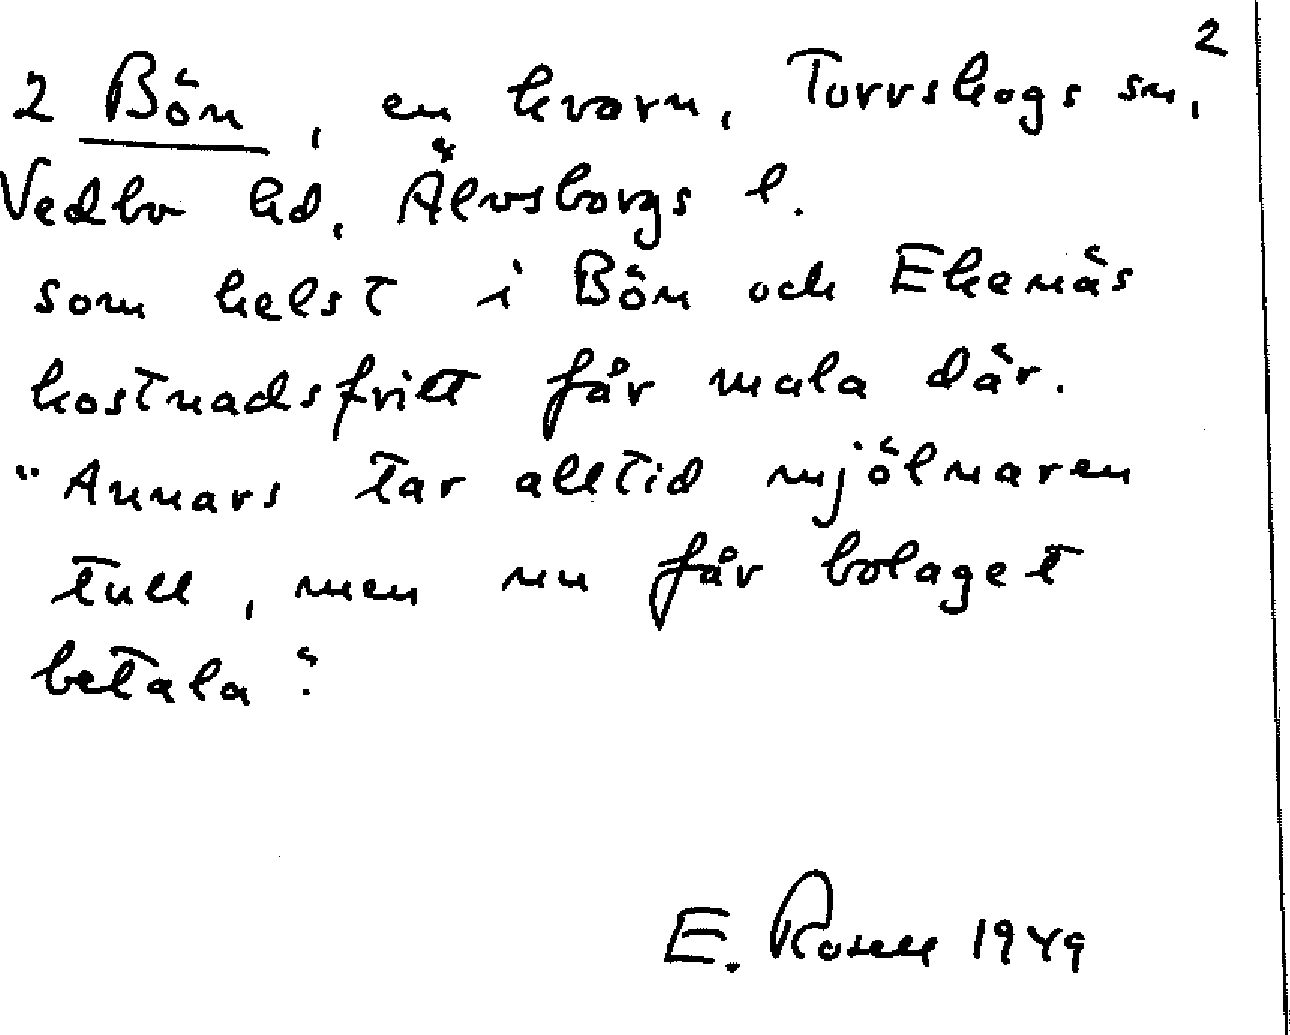 2
2 Bön, en kvarn, Torrskogs sn,
Vedbo hd, Älvsborgs l.
som helst i Bön och Ekenäs
kostnadsfritt får mala där.
"Annars tar alltid mjölnaren
tull, men nu får bolaget
betala".
E. Rosell 1949